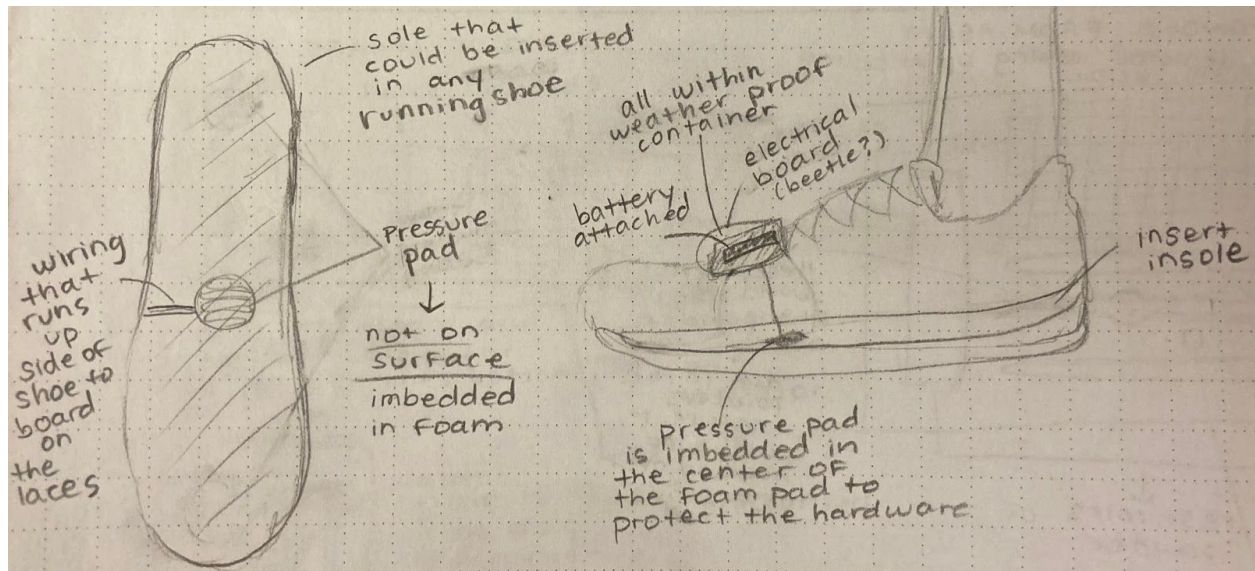 sole that
could be inserted
in any
running shoe
wiring
that
runs
up
side of
shoe to
board
on
the
laces
Pressure
pad
not on
surface
imbedded
in foam
all within
weather proof
container
electrical
board
(beetle?)
battery
attached
insert
insole
pressure pad
is imbedded in
the center of
the foam pad to
protect the hardware